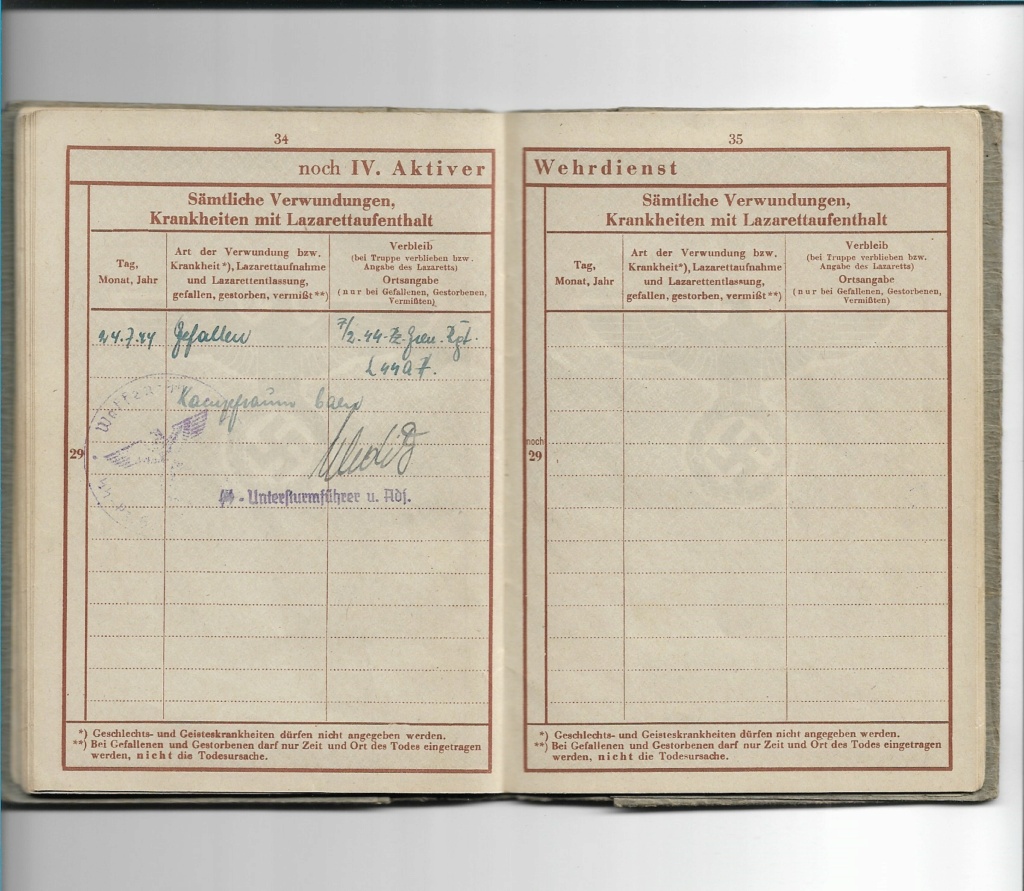 34
noch IV. Aktiver
Sämtliche Verwundungen,
Krankheiten mit Lazarettaufenthalt
Tag,
Monat, Jahr
Art der Verwundung bzw.
Krankheit*), Lazarettaufnahme
und Lazarettentlassung,
gefallen, gestorben, vermißt**)
Verbleib
(bei Truppe verblieben bzw.
Angabe des Lazaretts)
Ortsangabe
(nur bei Gefallenen, Gestorbenen,
Vermißten)
24.7.44 Gefallen
Kampfraum Caen
29
Waffen-
-Untersturmführer u. Adj.
*) Geschlechts- und Geisteskrankheiten dürfen nicht angegeben werden.
**) Bei Gefallenen und Gestorbenen darf nur Zeit und Ort des Todes eingetragen
werden, nicht die Todesursache.
35
Wehrdienst
Sämtliche Verwundungen,
Krankheiten mit Lazarettaufenthalt
Tag,
Monat, Jahr
Art der Verwundung bzw.
Krankheit*), Lazarettaufnahme
und Lazarettentlassung,
gefallen, gestorben, vermißt**)
Verbleib
(bei Truppe verblieben bzw.
Angabe des Lazaretts)
Ortsangabe
(nur bei Gefallenen, Gestorbenen,
Vermißten)
noch
29
*) Geschlechts- und Geisteskrankheiten dürfen nicht angegeben werden.
**) Bei Gefallenen und Gestorbenen darf nur Zeit und Ort des Todes eingetragen
werden, nicht die Todesursache.